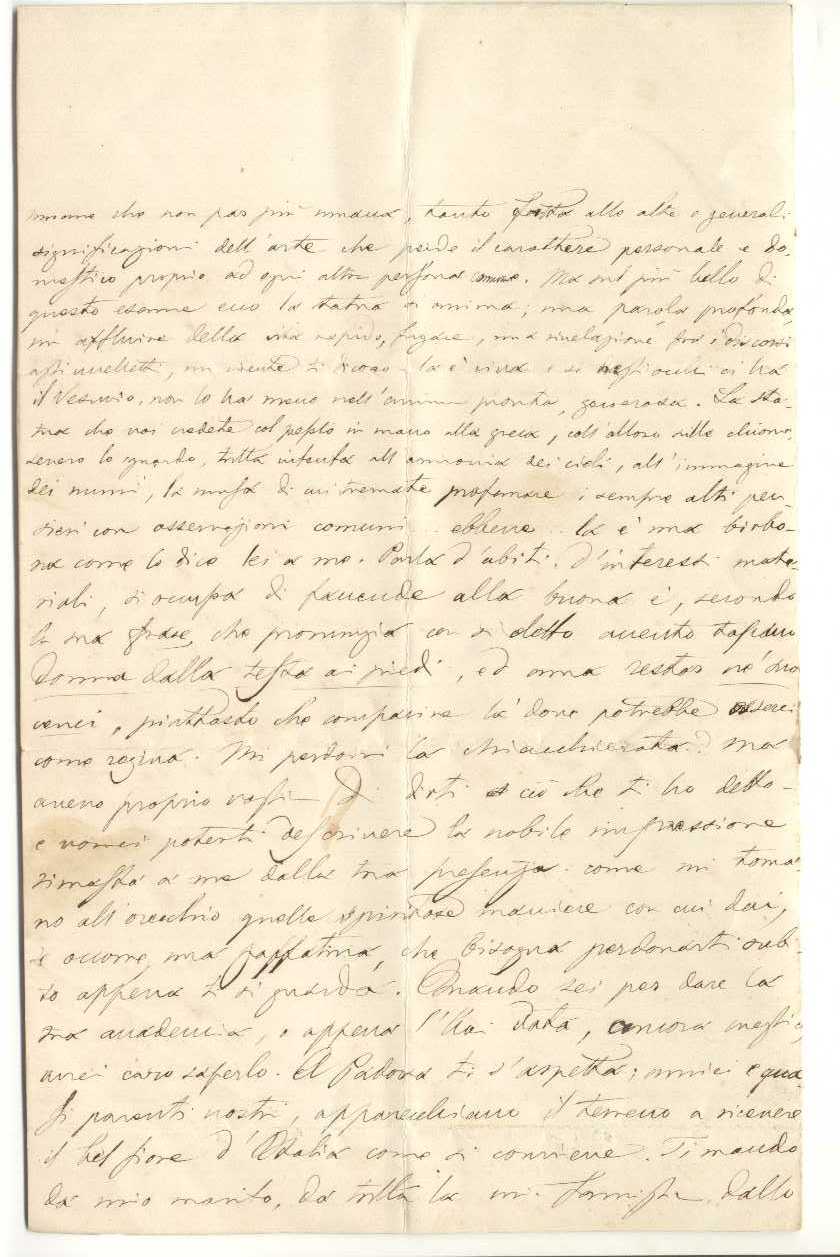 che non par più umana, tanto alle alte e generali
significazioni dell'arte che perde il carattere personale e do-
mestico proprio ad ogni altra persona comune. Ma sul più bello di
questo esame ecco la statua si anima; una parola profonda,
un della vita rapido, fugace, una rivelazione fra i discorsi
un niente ti dicono la è viva e se negli occhi ci ha
il Vesuvio, non lo ha meno nell'anima pronta, generosa. La sta-
tua che voi vedete col peplo in mano alla greca, coll'alloro sulle chiome,
severo lo sguardo, tutta intenta all'armonia dei cieli, all'immagine
dei numi, la musa di cui tremate profanare i sempre alti pen-
sieri con osservazioni comuni.. ebbene.. la è una birbo-
na come lo dico lei a me. Parla d'abiti, d'interessi mate-
riali, si occupa di faccende alla buona è, secondo
la sua frase, che pronunzia con sì accento
Donna dalla testa ai piedi, ed ama restar
cenci, piuttosto che comparire là dove potrebbe esserci
come regina. Mi perdoni la chiacchierata? Ma
aveva proprio di dirti ciò che ti ho detto
e vorrei poterti descrivere la nobile impressione
rimasta a me dalla tua presenza. come mi torna-
no all'orecchio quelle spiritose maniere con cui dai,
se occorre, una che bisogna perdonarti sub-
to appena ti si guarda. Quando sei per dare la
tua accademia, o appena l'hai data, ancora meglio,
avrei caro saperlo. A Padova ti s'aspetta; amici e qua-
si parenti nostri, apparecchiano il terreno a ricevere
il bel fiore d'Italia come si conviene. Ti mando
da mio marito, da tutta la mia famiglia, dallo